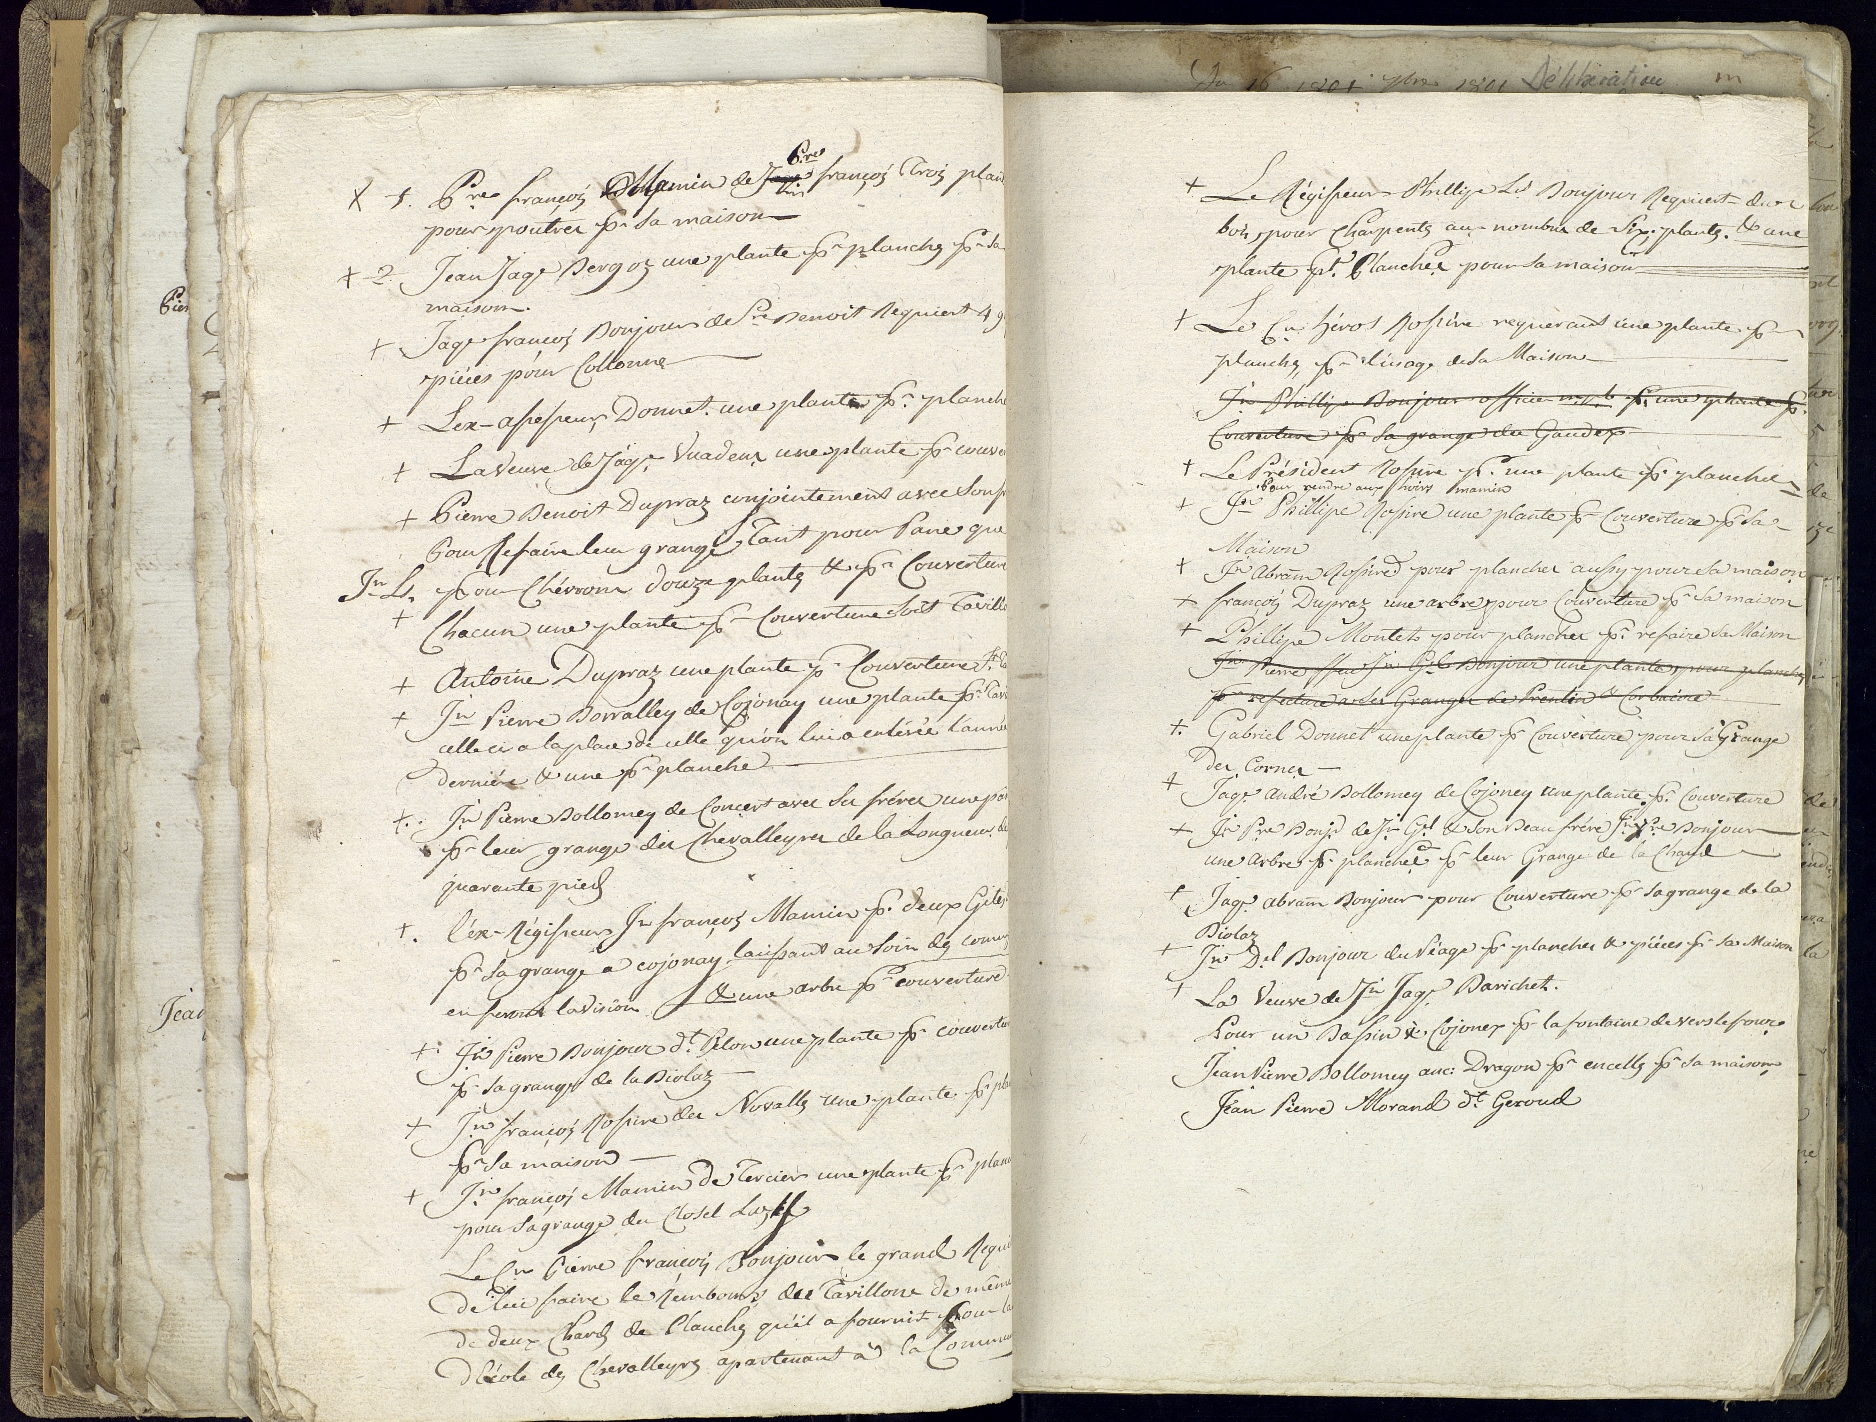 X 1. Pre françois Mamin de Pre françois Trois plan
pour poutres pr sa maison
+ 2. Jean Jaqe Bergoz une plante pr planches pr sa
maison.
+ Jaqe françois Bonjour de Pre Benoit Requiert 4 g
pièces pour Collonne
+ L'ex-assesseur Donnet une plante pr planch
+ La Veuve de Jaqe Vuadens une plante pr couve
+ Pierre Benoit Dupraz conjointement avec Son
Pour Refaire leur grange Tant pour Pane que
Jn Ls. pour Chévrons douze plantes & pr Couverture
+ Chacun une plante pr Couverture Soit Taville
+ Antoine Dupraz une plante pr Couverture
+ Jn Pierre Borralley de Cojonay une plante pr Tavi
celle ci a la place de celle qu'on lui a enlevée l'année
dernière & une pr planche
+. Jn Pierre Bollomey de Concert avec Ses fréres une
pr leur grange des Chevalleyres de la Longueur de
quarante pieds
+. l'éx-Régisseur Jn françois Mamin pr deux Gites
pr Sa grange a cojonay laissant au Soin des
en feront la Vision & une arbre pr couverture
+. Jn Pierre Bonjour dt Pelon une plante pr couvertu
pr Sa grange de la Biolaz
+ Jn françois Rossire des Novalles une plante pr pla
pr Sa maison
+ Jn françois Mamin de Tercier une plante pr plan
pour Sa grange du Closel
Le Cn Pierre françois Bonjour le grand Requi
de lui faire le Rembours des Tavillons de même
de deux Chars de Planches qu'il a fournit pour la
d'école des Chevalleyres apartenant à la Commu
Du 16 1801 1801 Délibération
+ Le Régisseur Phillipe Ls Bonjour Requiert du
bois pour Charpente au nombre de Six plantes. & une
plante pr Planches pour Sa maison
+ Le Cn héros Rossire requerant une plante pr
planches, pr l'usage de Sa Maison
Jn Phillipe Bonjour officier pr une plante pr
Couverture pr Sa grange du Gaudex
+ Le Président Rossire pr une plante pr planches
Pour rendre aux hoirs mamin
+ Jn Phillipe Rossire une plante pr Couverture pr Sa
Maison
+ Jn Abram Rossire pour planches aussy pour Sa maison
+ françois Dupraz une arbre pour Couverture pr Sa maison
+ Phillipe Montet pour planches pr refaire Sa Maison
Jn Pierre ffeu Jn Gel Bonjour une plante pour planche
pr refecture a Ses Granges de Prentin & Corbaire
+. Gabriel Donnet une plante pr Couverture pour Sa Grange
des Cornes
+ Jaqe André Bollomey de Cojoney une plante pr Couverture
+ Jn Pre Bonjr de Jn Gel & Son Beau frére Jn Pre Bonjour
une arbre pr planches pr leur Grange de la Chaud
+ Jaqe abram Bonjour pour Couverture pr Sa grange de la
Biolaz
+ Jn Del Bonjour du Péage pr planches & pièces pr Sa Maison
+ La Veuve de Jn Jaqe Barichet.
Pour un Bassin à Cojonex pr la fontaine de vers le four
Jean Pierre Bollomey anc: Dragon pr encelles pr Sa maison
Jean Pierre Morand dt Geroud